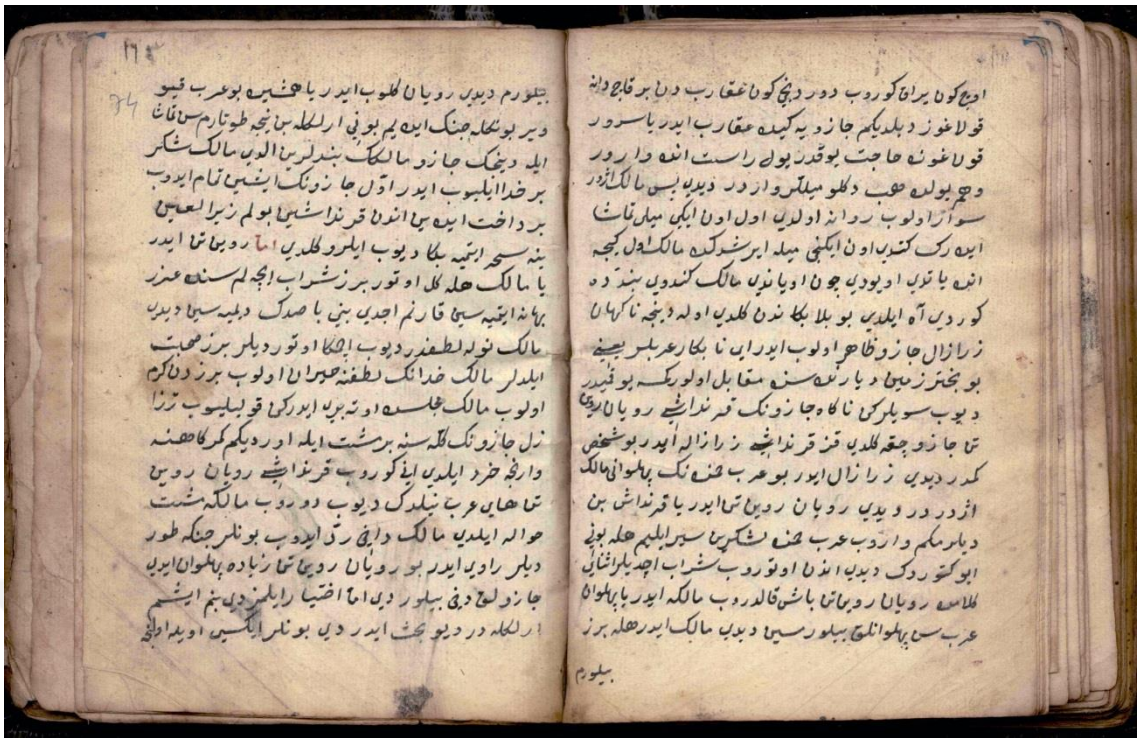 اوچ کون یراق کوروب دوردنجی کون عقارب دن بر قاچ دانه
قولاغوز دیلدیکم جازویه کیده عقارب ایدر یا سرور
قولاغوزه حاجت یوقدر یول راست انده وارور
وهم یولده هب دکلو میللر واردر دیدی پس مالک اژدر
سوار اولوب روانه اولدی اول اون ایکی میلی تماشا
ایدرک کتدی اون ایکنجی میله ایرشدکده مالک اول کیجه
انده یاتدی اویودی چون اویاندی مالک کندوی بندده
کوردی آه ایلدی بو بلا بکا ندن کلدی اوله دینجه ناکهان
زرازال جازو ظاهر اولوب ایدر ای نابکار عربلر یعنی
بو بختر زمین دیارنده سزه مقابل اولورکسه یوقمیدر
دیوب سویلرکن ناکاه جازونک قرنداشی رویان روین
تن جازو چقه کلدی قز قرنداشی زرازاله ایدر بو شخص
کمدر دیدی زرازال ایدر بو عرب حمزه نک پهلوانی مالک
اژدردر دیدی رویان روین تن ایدر یا قرنداش بن
دیلرمکم واروب عرب حمزه لشکرین سیر ایلیم هله بونی
ابو کتورک دیدی اندن اوتوروب شراب اچدیلر اثنای
کلامده رویان روین تن باش قالدروب مالکه ایدر یا پهلوان
عرب سن پهلوانلق بیلورمسین دیدی مالک ایدر هله برز
بیلورم
بیلورم دیدی رویان کلوب ایدر یا همشیره بو عرب قیو
ویر بونکله جنک ایده یم بونی ارلکله بن نیجه طوتارم سن تماشا
ایله دینجک جازو مالکک بندلرین الدی مالک شکر
بر خدا ایلیوب ایدر اول جازونک ایشین تمام ایدوب
برداخت ایده ین اندن قرنداشین بولم زیرا لعین
ینه سحر ایتمیه بکا دیوب ایلرو کلدی اما روین تن ایدر
یا مالک هله کل اوتور برز شراب ایچه لم سنده عذر
بهانه ایتمیه سین قارنم اجدی بنی باصدک دیمیه سین دیدی
مالک نوله لطفکدر دیوب اچکا اوتوردیلر برز صحبت
ایلدلر مالک خدانک لطفنه حیران اولوب برزدن کرم
اولوب مالک مجلسده اوته بری ایدرکن قولیلیوب زرا
زل جازونک کله سنه بر مشت ایله اوردیکم کمرکاهنه
وارنجه خرد ایلدی انی کوروب قرنداشی رویان روین
تن های عرب نیلدک دیوب دوروب مالکه مشت
حواله ایلدی مالک دخی رد ایدوب بونلر جنکه طور
دیلر راوی ایدر بو رویان روین تن زیاده پهلوان ایدی
جازولق دخی بیلوردی اما اختیار ایلمزدی بنم ایشم
ارلکله در دیو بحث ایدردی بونلر ایکسی اویله اولنجه
١٦
74